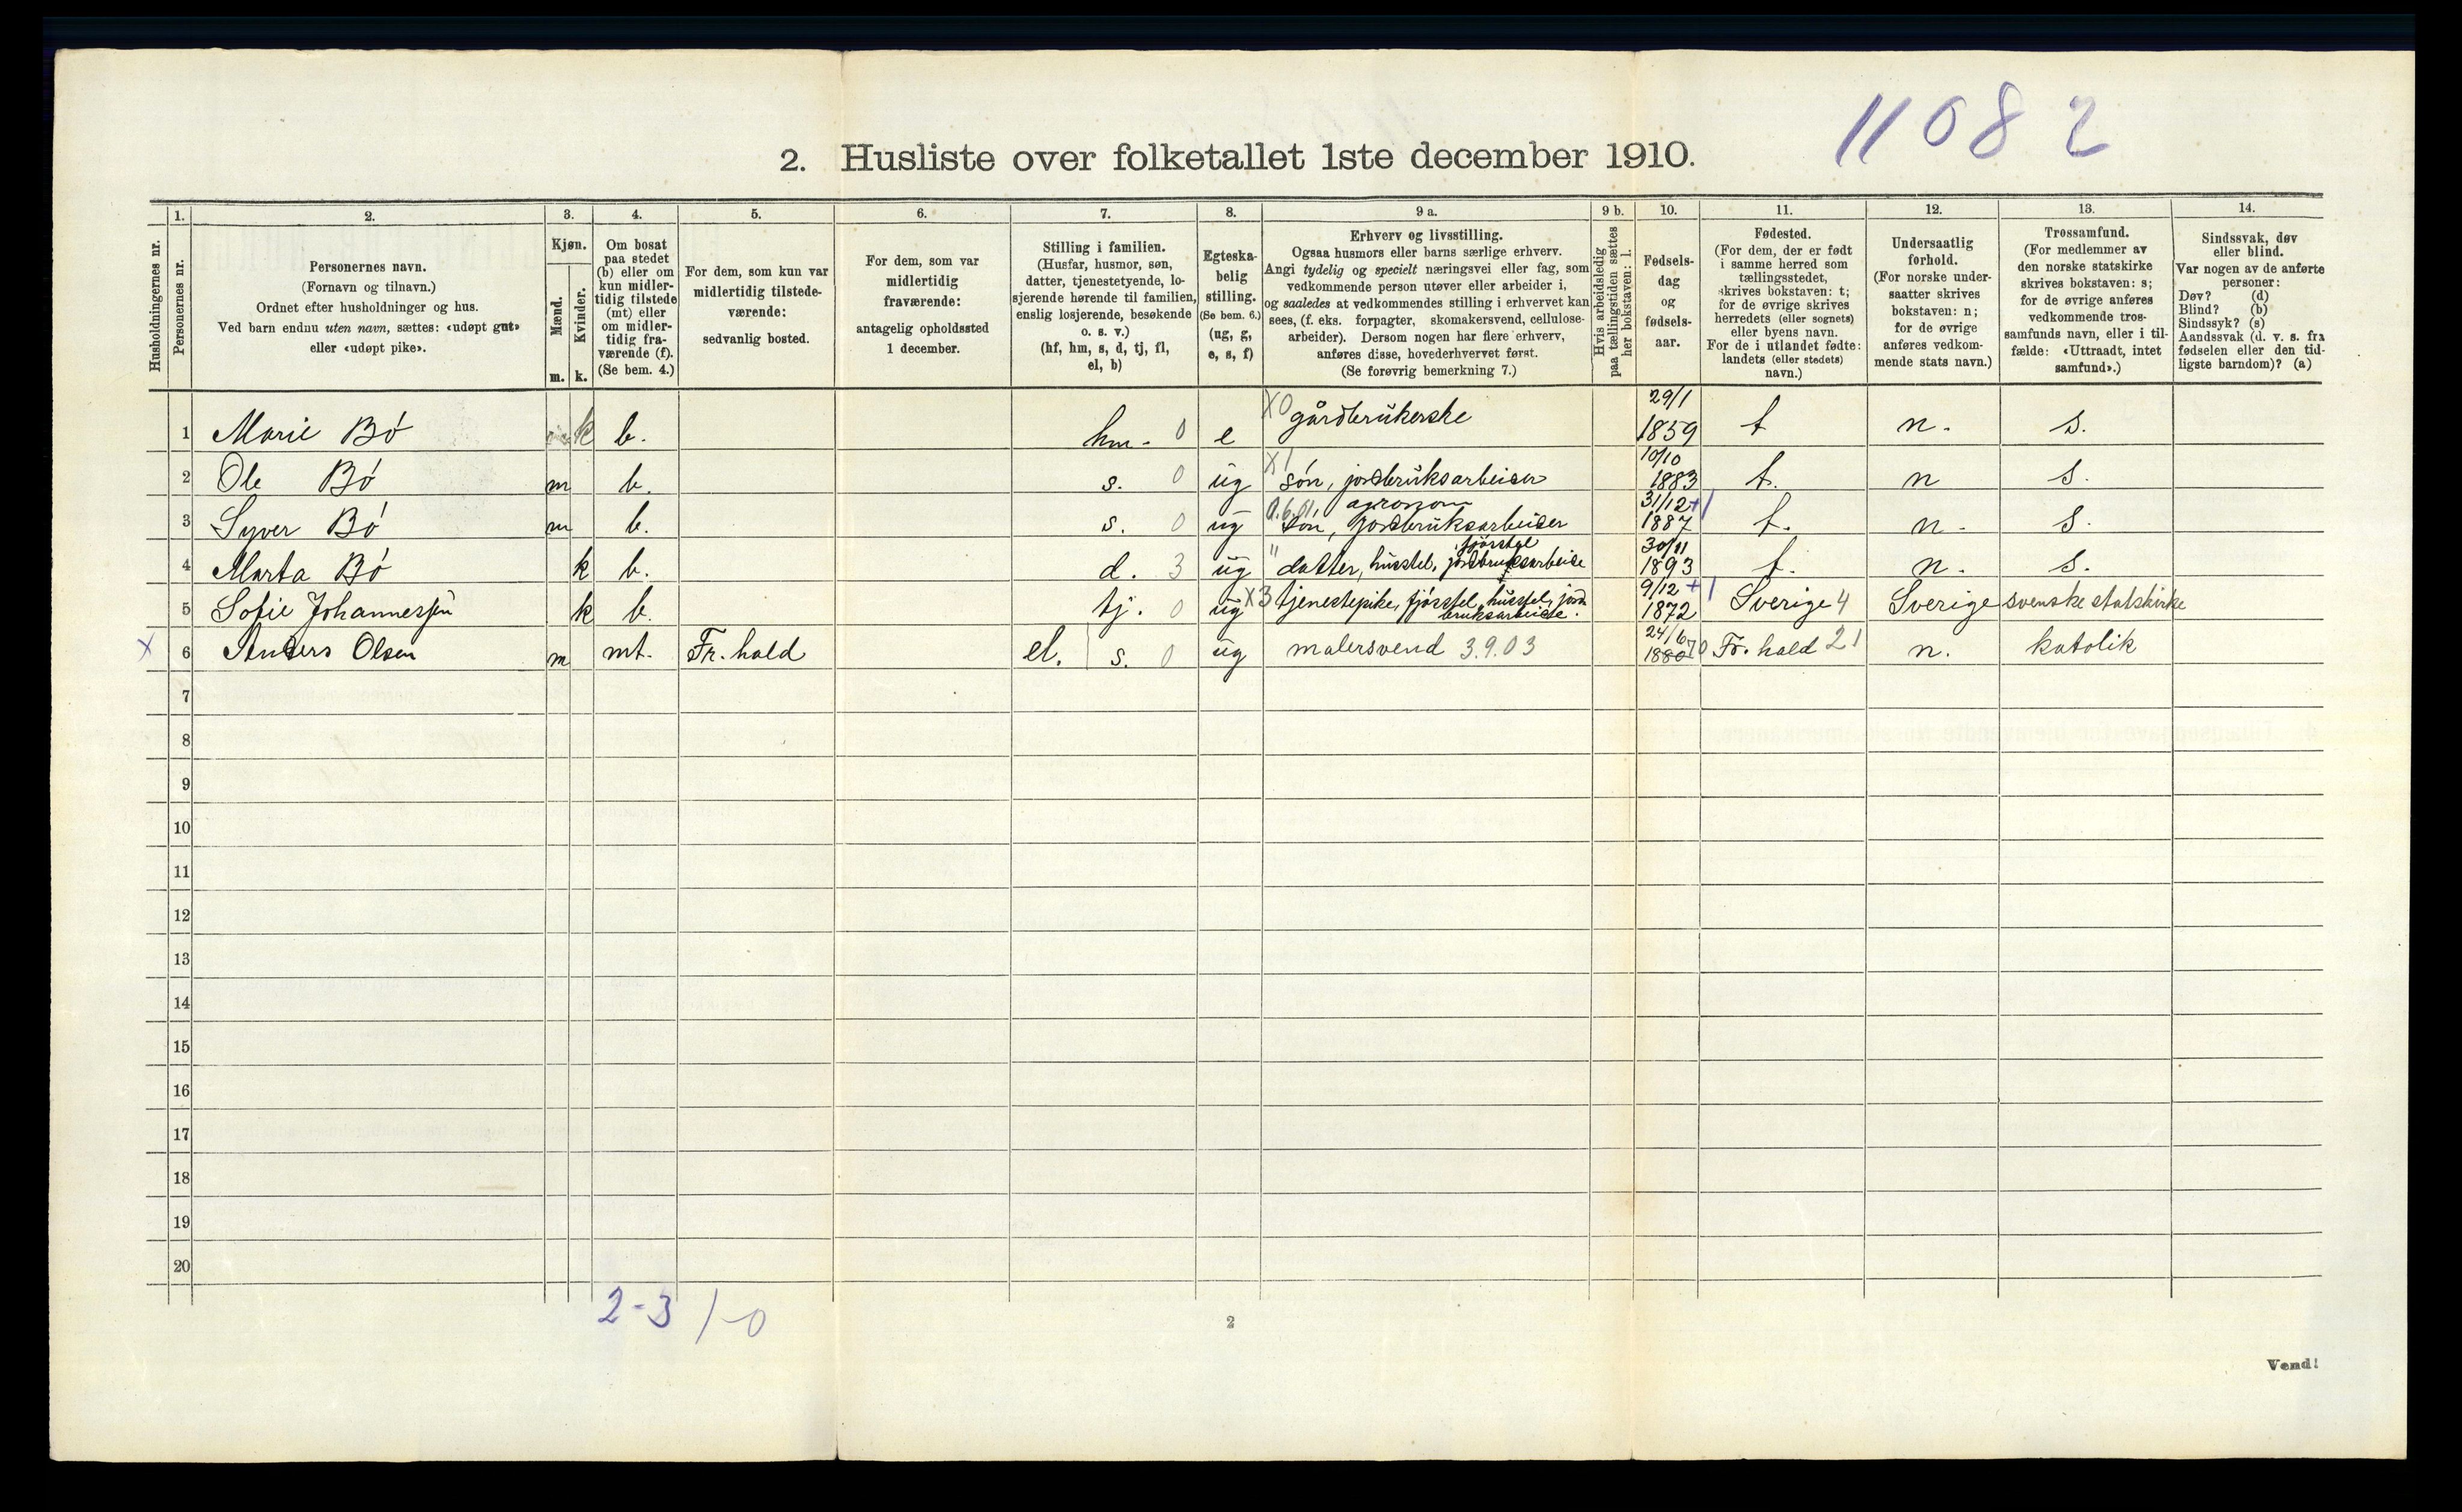 11082
2. Husliste over folketallet 1ste december 1910.
Husholdningernes nr.
1.
Personernes nr.
2.
Personernes navn.
(Fornavn og tilnavn.)
Ordnet efter husholdninger og hus.
Ved barn endnu uten navn, sættes: «udøpt gut»
eller «udøpt pike».
3.
Kjøn.
Mænd.
Kvinder.
m. k.
4.
Om bosat
paa stedet
(b) eller om
kun midler-
tidig tilstede
(mt) eller
om midler-
tidig fra-
værende (f).
(Se bem. 4.)
5.
For dem, som kun var
midlertidig tilstede-
værende:
sedvanlig bosted.
6.
For dem, som var
midlertidig
fraværende:
antagelig opholdssted
1 december.
7.
Stilling i familien.
(Husfar, husmor, søn,
datter, tjenestetyende, lo-
sjerende hørende til familien,
enslig losjerende, besøkende
o. s. v.)
(hf, hm, s, d, tj, fl,
el, b)
8.
Egteska-
belig
stilling.
(Se bem. 6.)
(ug, g,
e, s, f)
9 a.
Erhverv og livsstilling.
Ogsaa husmors eller barns særlige erhverv.
Angi tydelig og specielt næringsvei eller fag, som
vedkommende person utøver eller arbeider i,
og saaledes at vedkommendes stilling i erhvervet kan
sees, (f. eks. forpagter, skomakersvend, cellulose-
arbeider). Dersom nogen har flere erhverv,
anføres disse, hovederhvervet først.
(Se forøvrig bemerkning 7.)
9 b.
Hvis arbeidsledig
paa tællingstiden sættes
her bokstaven: l.
10.
Fødsels-
dag
og
fødsels-
aar.
11.
Fødested.
(For dem, der er født
i samme herred som
tællingsstedet,
skrives bokstaven: t;
for de øvrige skrives
herredets (eller sognets)
eller byens navn.
For de i utlandet fødte:
landets (eller stedets)
navn.)
12.
Undersaatlig
forhold.
(For norske under-
saatter skrives
bokstaven: n;
for de øvrige
anføres vedkom-
mende stats navn.)
13.
Trossamfund.
(For medlemmer av
den norske statskirke
skrives bokstaven: s;
for de øvrige anføres
vedkommende tros-
samfunds navn, eller i til-
fælde: «Uttraadt, intet
samfund».)
14.
Sindssvak, døv
eller blind.
Var nogen av de anførte
personer:
Døv? (d)
Blind? (b)
Sindssyk? (s)
Aandssvak (d. v. s. fra
fødselen eller den tid-
ligste barndom)? (a)
1 Marie Bó k b. hm. 0 e X0 gårdbrukerske 29/1 1859 t n. s.
2 Ole Bó m b. s. 0 ug X1 són, jordbruksarbeider 10/10 1883 t. n s.
3 Syver Bó m b. s. 0 ug són, agronom jordbruksarbeider 31/12 +1 1887 t. n. s.
4 Marta Bó k b. d. 3 ug " datter, husstel, fjósstel jordbruksarbeide 30/11 1893 t. n. s.
5 Sofie Johannessen k b. tj. 0 ug X3 tjenestepike, fjósstel, husstel, jord bruksarbeide. 9/12 +1 1872 Sverige 4 Sverige svenske statskirke
X 6 Anders Olsen m mt. Fr. hald el. s. 0 ug malersvend 3.9.03 24/6 1880 70 Fr. hald 21 n. katolik
7
8
9
10
11
12
13
14
15
16
17
18
19
20
2-3 1-0
2
Vend!